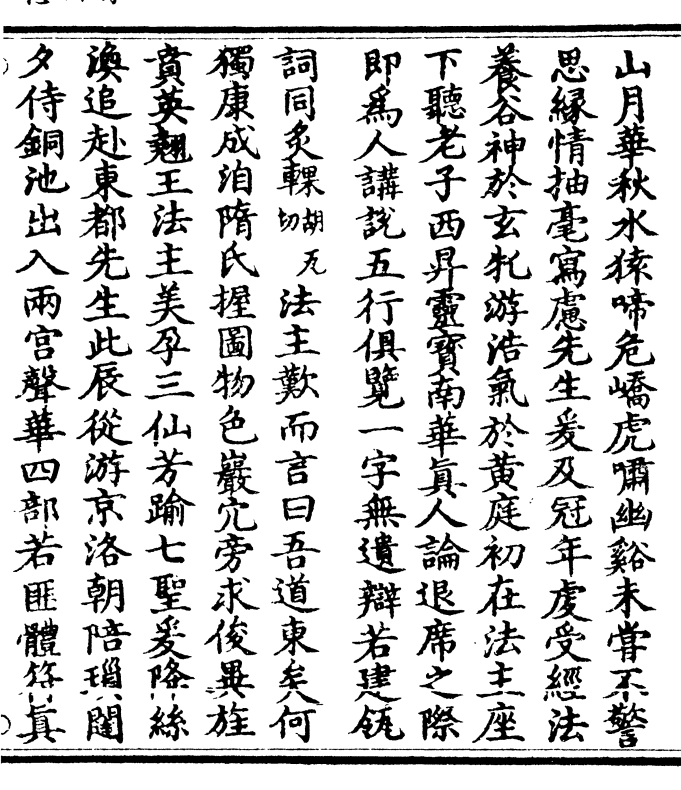 山月華秋水猿啼危嶠虎嘯幽谿未嘗不警
思緣情抽毫寫慮先生爰及冠年虔受經法
養谷神於玄牝游浩氣於黃庭初在法主座
下聽老子西昇靈寶南華眞人論退席之際
即爲人講說五行俱覽一字無遺辯若建瓴
詞同炙輠胡瓦切法主歎而言曰吾道東矣何
獨康成洎隋氏握圖物色巖穴旁求俊異旌
賁英翹王法主美孕三仙芳踰七聖爰降絲
渙追赴東都先生此辰從游京洛朝陪瑣闥
夕侍銅池出入兩宮聲華四部若匪體符眞